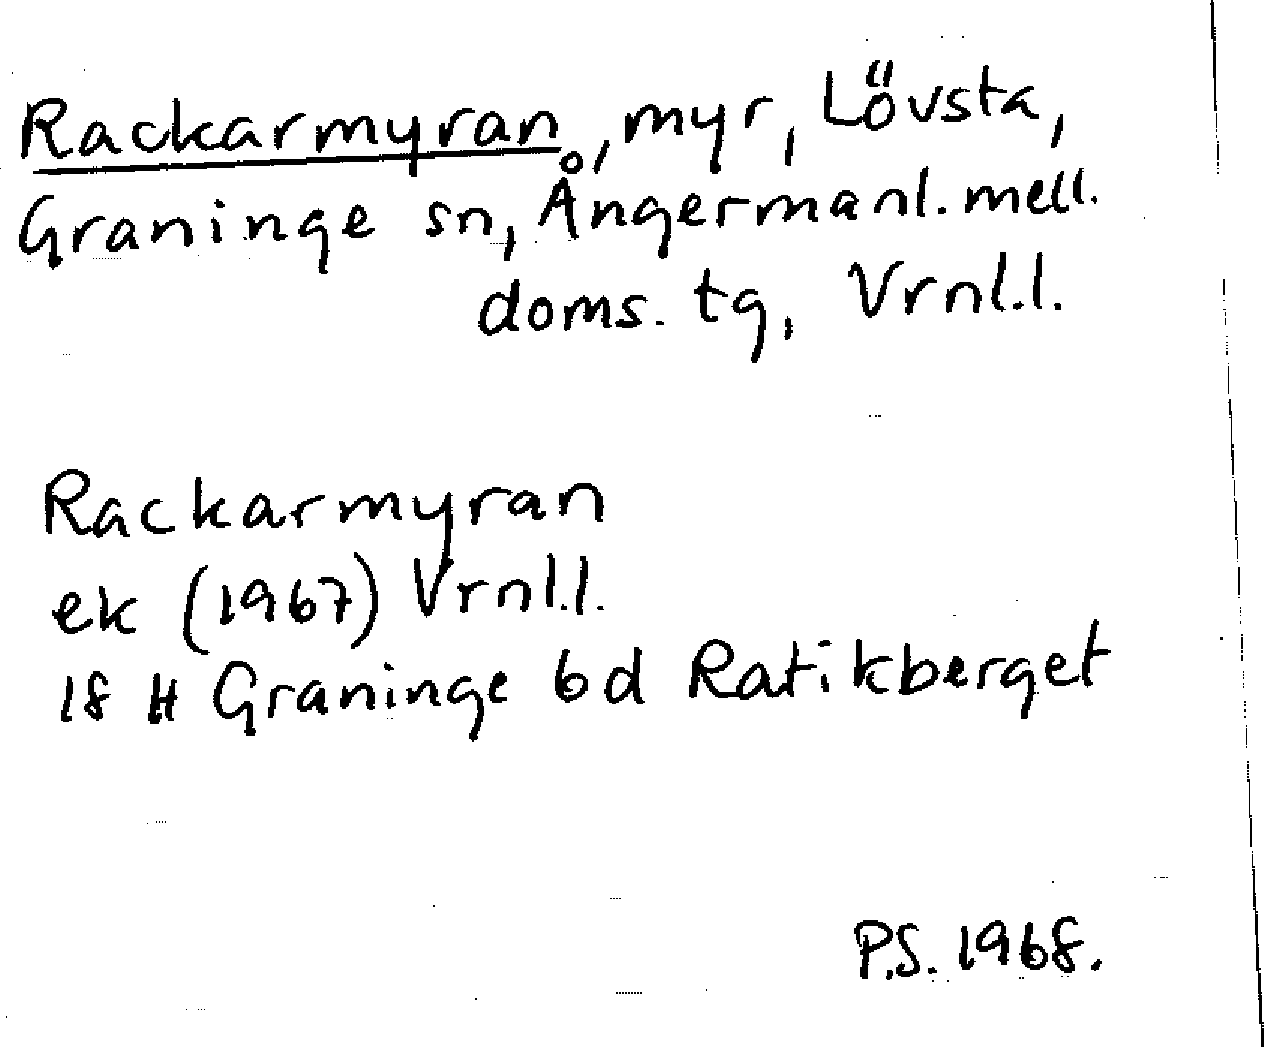 Rackarmyran, myr, Lövsta,
Graninge sn, Ångermanl. mell.
doms. tg, Vrnl.l.
Rackarmyran
ek (1967) Vrnl.l.
18 H Graninge bd Ratikberget
P.S. 1968.